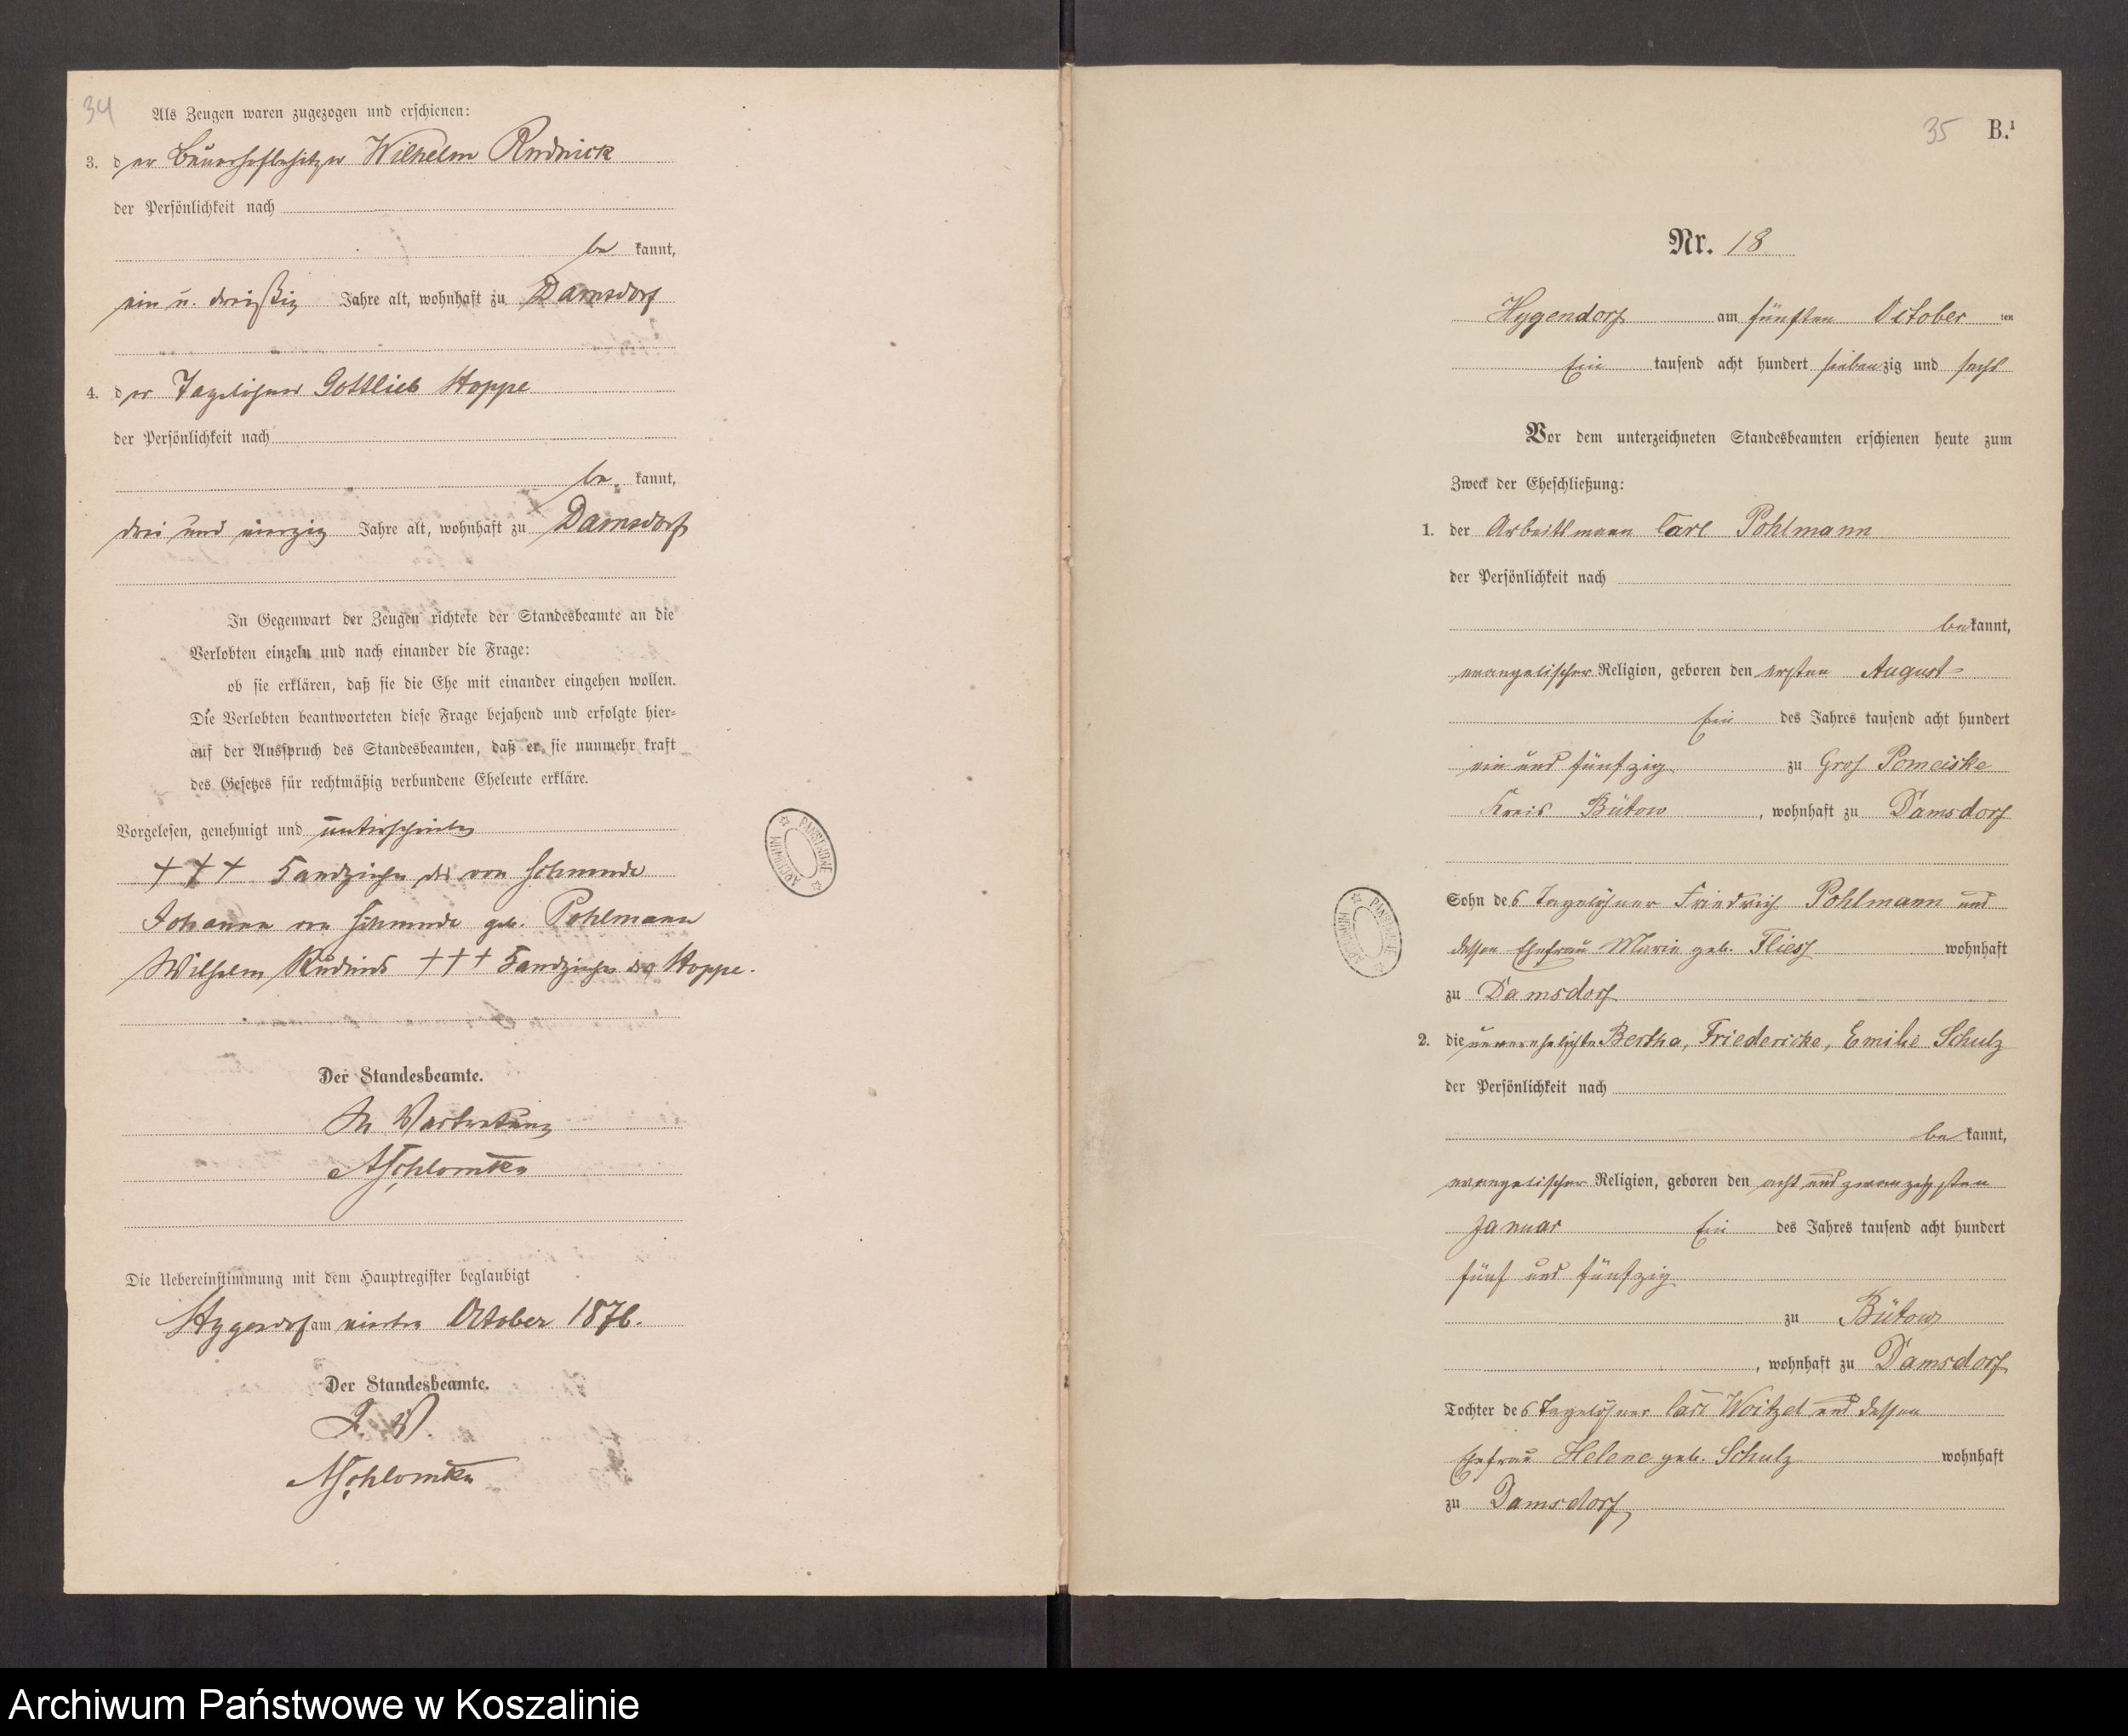 34
Als Zeugen waren zugezogen und erschienen:
3. der Bauerhofbesitzer Wilhelm Rudnick
der Persönlichkeit nach
be kannt,
ein u. dreißig Jahre alt, wohnhaft zu Damsdorf
4. der Tagelöhner Gottlieb Hoppe
der Persönlichkeit nach
be kannt,
drei und vierzig Jahre alt, wohnhaft zu Damsdorf
In Gegenwart der Zeugen richtete der Standesbeamte an die
Verlobten einzeln und nach einander die Frage:
ob sie erklären, daß sie die Ehe mit einander eingehen wollen.
Die Verlobten beantworteten diese Frage bejahend und erfolgte hier-
auf der Ausspruch des Standesbeamten, daß er sie nunmehr kraft
des Gesetzes für rechtmäßig verbundene Eheleute erkläre.
Vorgelesen, genehmigt und unterschrieben
+++ Handzeichen des von
Johanna von geb. Pohlmann
Wilhelm Rudnick +++ Handzeichen des Hoppe.
Der Standesbeamte.
In Vertretung
Die Uebereinstimmung mit dem Hauptregister beglaubigt
Hygendorf am vierten October 1876.
Der Standesbeamte.
I. V.
ARCHIWUM PAŃSTWOWE
35 B.¹
Nr. 18
Hygendorf am fünften October ten
Ein tausend acht hundert siebenzig und sechs
Vor dem unterzeichneten Standesbeamten erschienen heute zum
Zweck der Eheschließung:
1. der Arbeitsmann Carl Pohlmann
der Persönlichkeit nach
be kannt,
evangelischer Religion, geboren den ersten August
Ein des Jahres tausend acht hundert
ein und fünfzig zu Groß Pomeiske
Kreis Bütow, wohnhaft zu Damsdorf
Sohn des Tagelöhner Friedrich Pohlmann und
dessen Ehefrau Marie geb. Fliess wohnhaft
zu Damsdorf
2. die unverehelichte Bertha, Friedericke, Emilie Schulz
der Persönlichkeit nach
be kannt,
evangelischer Religion, geboren den acht und zwanzigsten
Januar Ein des Jahres tausend acht hundert
fünf und fünfzig
zu Bütow
, wohnhaft zu Damsdorf
Tochter des Tagelöhner Carl Woitzel und dessen
Ehefrau Helene geb. Schulz wohnhaft
zu Damsdorf
ARCHIWUM PAŃSTWOWE
Archiwum Państwowe w Koszalinie